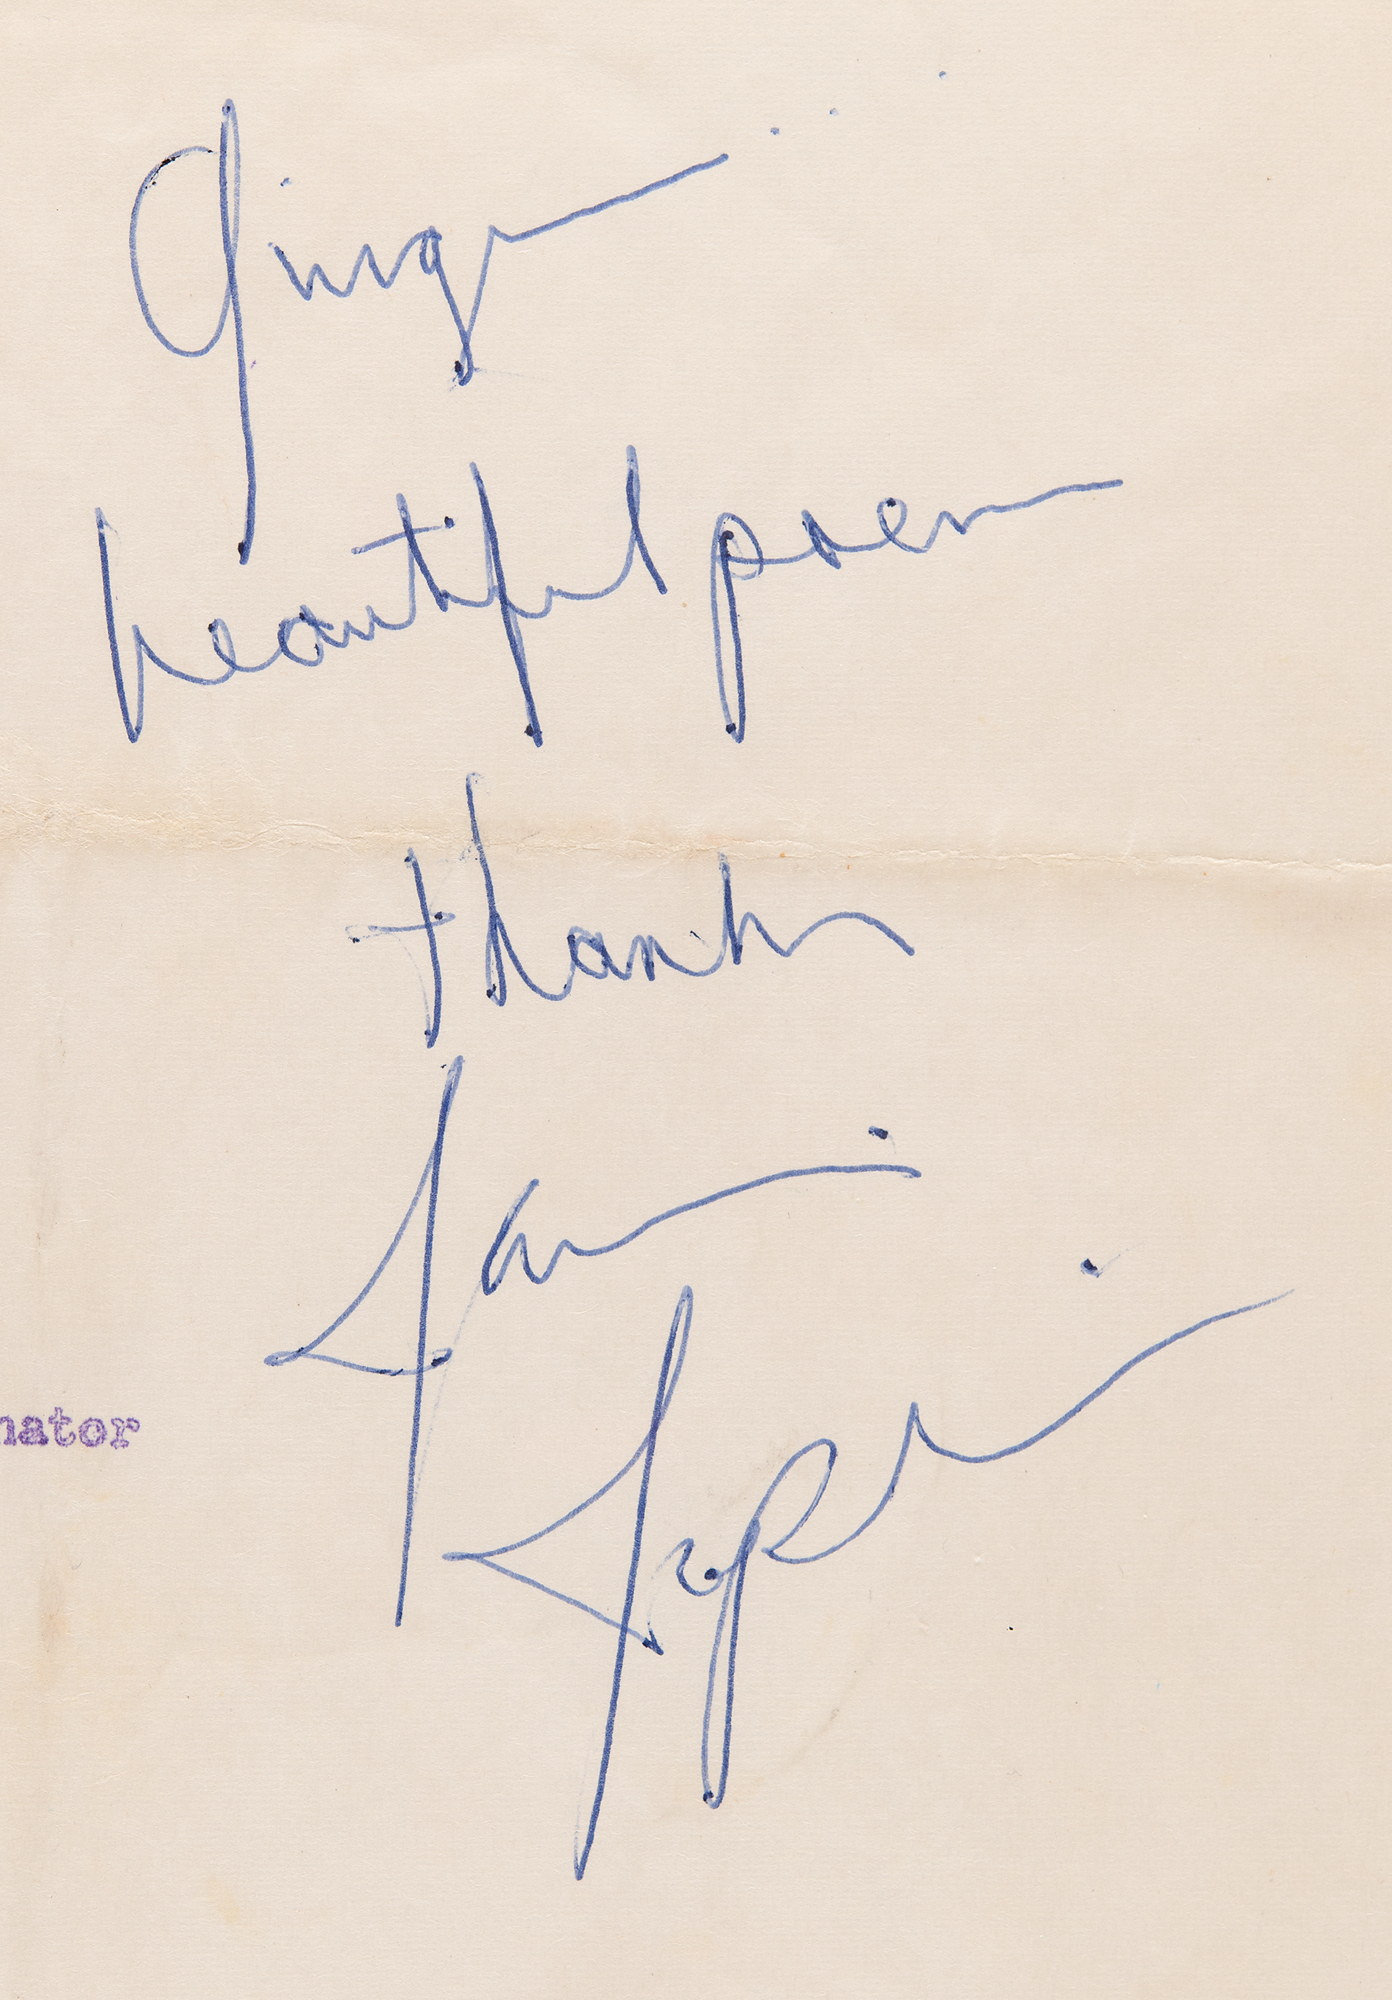 Ginger
beautiful poem
thanks
Janis
Joplin
nator